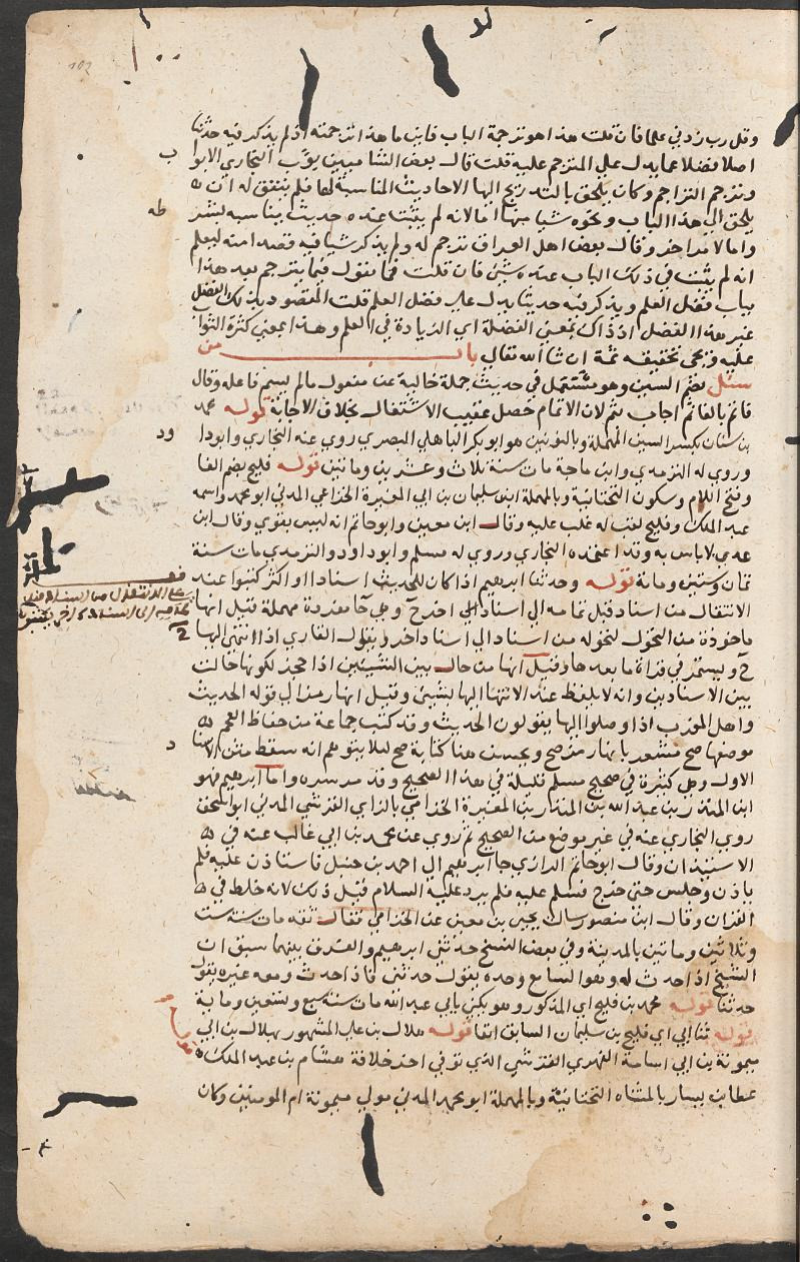 وقل رب زدني علما فان قلت هذا هو ترجمة الباب فاين ما هذا ترجمته اذ لم يذكر فيه حديثا
اصلا فضلا عما يدل علي المترجم عليه قلت قال بعض الشاميين بوب البخاري الابواب
وترجم التراجم وكان يلحق بالتدريج اليها الاحاديث المناسبة لها فلم يتفق له ان
يلحق الي هذا الباب ونحوه شيا منها اما لانه لم يثبت عنده حديث يناسبه بشرطه
واما لامر اخر وقال بعض اهل العراق ترجم له ولم يذكر شيا فيه قصدا منه ليعلم
انه لم يثبت في ذلك الباب عنده شي فان قلت فما تقول فيما يترجم بعد هذا
بباب فضل العلم ويذكر فيه حديثا يدل علي فضل العلم قلت المقصود بذلك الفضل
غير هذا الفضل اذ ذاك بمعني الفضلة اي الزيادة في العلم وهذا بمعني كثرة الثواب
عليه ويجي تحقيقه ثمة ان شا الله تعالي باب من
سئل بضم السين وهو مشتمل في حديث جملة حالية عن مفعول مالم يسم فاعله وقال
فاتم بالفا ثم اجاب بثم لان الاتمام حصل عقيب الاشتغال بخلاف الاجابة قوله محمد
بن سنان بكسر السين المهملة وبالنونين هو ابو بكر الباهلي البصري روي عنه البخاري وابو داود
وروي له الترمذي وابن ماجة مات سنة ثلاث وعشرين ومائتين قوله فليح بضم الفا
وفتح اللام وسكون التحتانية وبالمهملة ابن سليمان بن ابي المغيرة الخزاعي المدني ابو محمد واسمه
عبد الملك وفليح لقب له غلب عليه وقال ابن معين وابو حاتم انه ليس بقوي وقال ابن
عدي لا باس به وقد اعتمده البخاري وروي له مسلم وابو داود والترمذي مات سنة
ثمان وستين ومائة قوله وحدثنا ابرهيم اذا كان للحديث اسنادا او اكثر كتبوا عند
الانتقال من اسناد قبل تمامه الي اسناد الي اخر ح وهي حا مفردة مهملة قيل انها
ماخوذة من التحول لتحوله من اسناد الي اسناد اخر ويقول القاري اذا انتهي اليها
ح ويستمر في قراة ما بعدها وقيل انها من حال بين الشيئين اذا حجز لكونها حالت
بين الاسنادين وانه لا يلفظ عند الانتها اليها بشي وقيل انها رمز الي قوله الحديث
واهل المغرب اذا وصلوا اليها يقولون الحديث وقد كتب جماعة من حفاظ العجم
موضعها صح مشعر بانها رمز صح ويحسن هنا كتابة صح ليلا يتوهم انه سقط متن الاسناد
الاول وهي كثيرة في صحيح مسلم قليلة في هذا الصحيح وقد مر مرارا واما ابرهيم فهو
ابن المنذر بن عبد الله بن المنذر بن المغيرة الخزامي بالزاي القرشي المدني ابو اسحق
روي البخاري عنه في غير موضع من الصحيح ثم روي عن محمد بن ابي غالب عنه في
الاستيذان وقال ابو حاتم الرازي جا ابرهيم الي احمد بن حنبل فاستاذن عليه فلم
ياذن وجلس حتي خرج فسلم عليه فلم يرد عليه السلام قيل ذلك لانه خلط في
القران وقال ابن منصور سالت يحيي بن معين عن الخزامي فقال ثقه مات سنة ست
وثلاثين ومائتين بالمدينة وفي بعض النسخ حدثني ابرهيم والفرق بينهما سبق ان
الشيخ اذا حدث له وهو السامع وحده يقول حدثني فاذا حدث ومعه غيره يقول
حدثنا قوله محمد بن فليح اي المذكور وهو يكني بابي عبد الله مات سنة سبع وتسعين ومائة
قوله ثنا ابي اي فليح بن سليمان السابق انفا قوله هلال بن علي المشهور بهلال بن ابي
ميمونة بن ابي اسامة الفهري القرشي الذي توفي في اخر خلافة هشام بن عبد الملك
عطا بن يسار بالمثناه التحتانية وبالمهملة ابو محمد المدني مولي ميمونة ام المومنين وكان